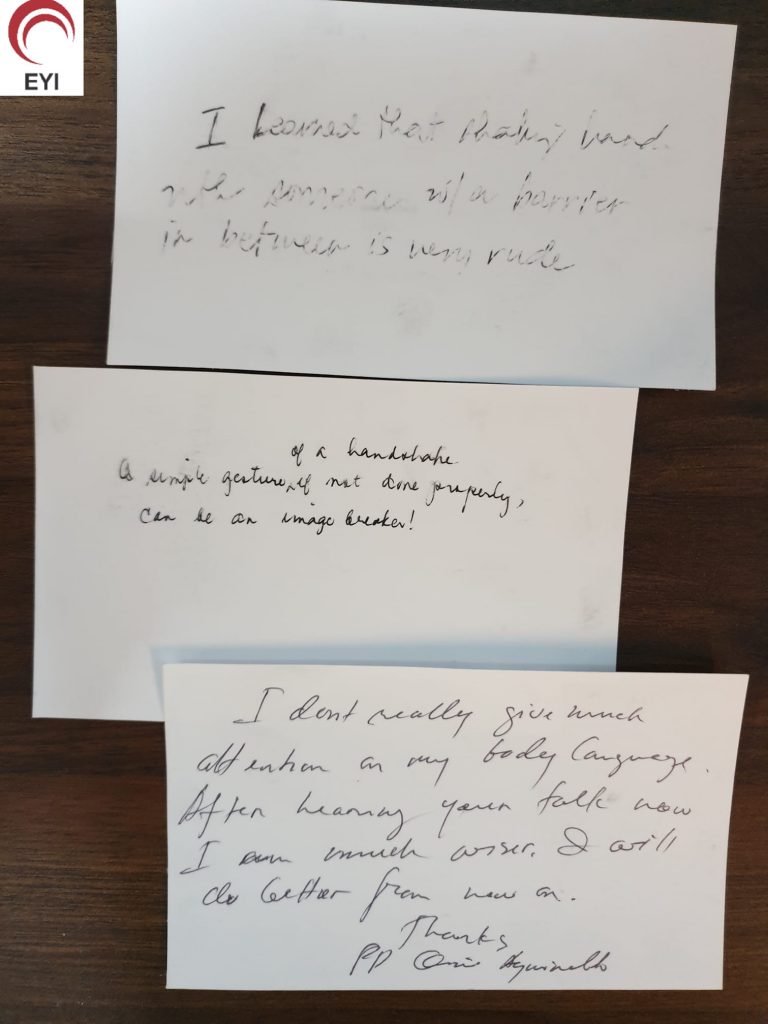 EYI
I learned that shaking hand
with someone w/ a barrier
in between is very rude
of a handshake
A simple gesture, if not done properly,
can be an image breaker!
I dont really give much
attention on my body language.
After hearing your talk now
I am much wiser. I will
do better from now on.
Thanks
PP